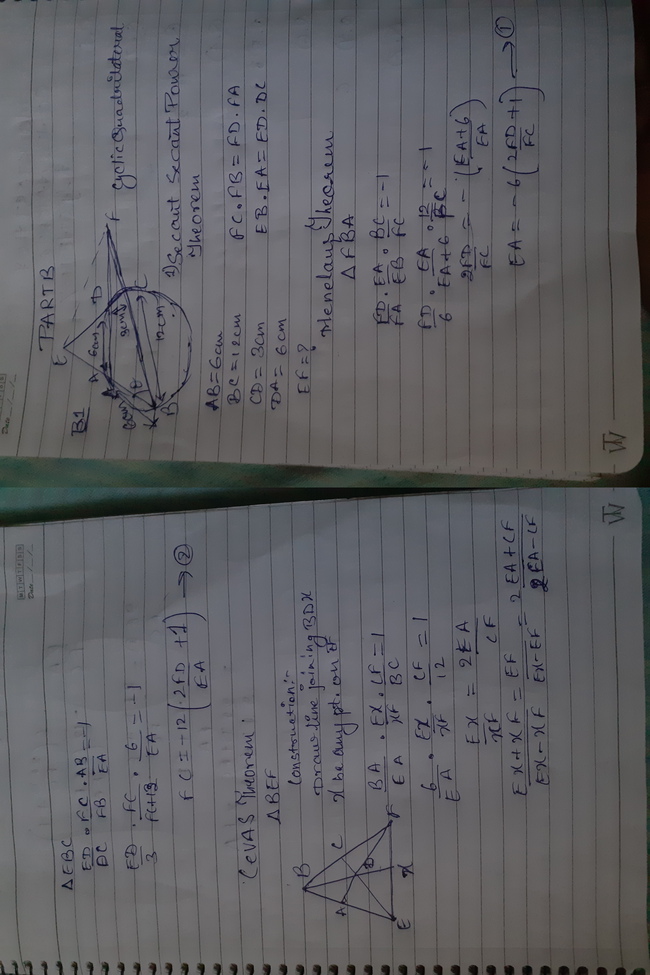 M T W T F S S
Date __/__/__
ΔEBC
ED/DC · FC/FB · AB/EA = -1
ED/3 · FC/FC+12 · 6/EA = -1
FC = -12(2FD/EA + 1) → ②
CEVAS Theorem:
ΔBEF
Construction:-
Draw line joining BDX
X be any pt. on EF
B
A
C
D
E
X
F
BA/EA · EX/XF · CF/BC = 1
6/EA · EX/XF · CF/12 = 1
EX/XF = 2EA/CF
EX+XF/EX-XF = EF/EX-EF = 2EA+CF/2EA-CF
Date __/__/__
PART B
B1
E
A
6cm
D
F
6cm
3cm
C
12cm
B
Cyclic Quadrilateral
1) Secant Secant Power
Theorem
AB = 6cm
BC = 12cm
CD = 3cm
DA = 6cm
EF = ?
FC·FB = FD·FA
EB·EA = ED·DC
Menelaus Theorem
ΔFBA
FD/FA · EA/EB · BC/FC = -1
FD/6 · EA/EA+6 · 12/BC = -1
2FD/FC = -(EA+6/EA)
EA = -6(2FD/FC + 1) → ①